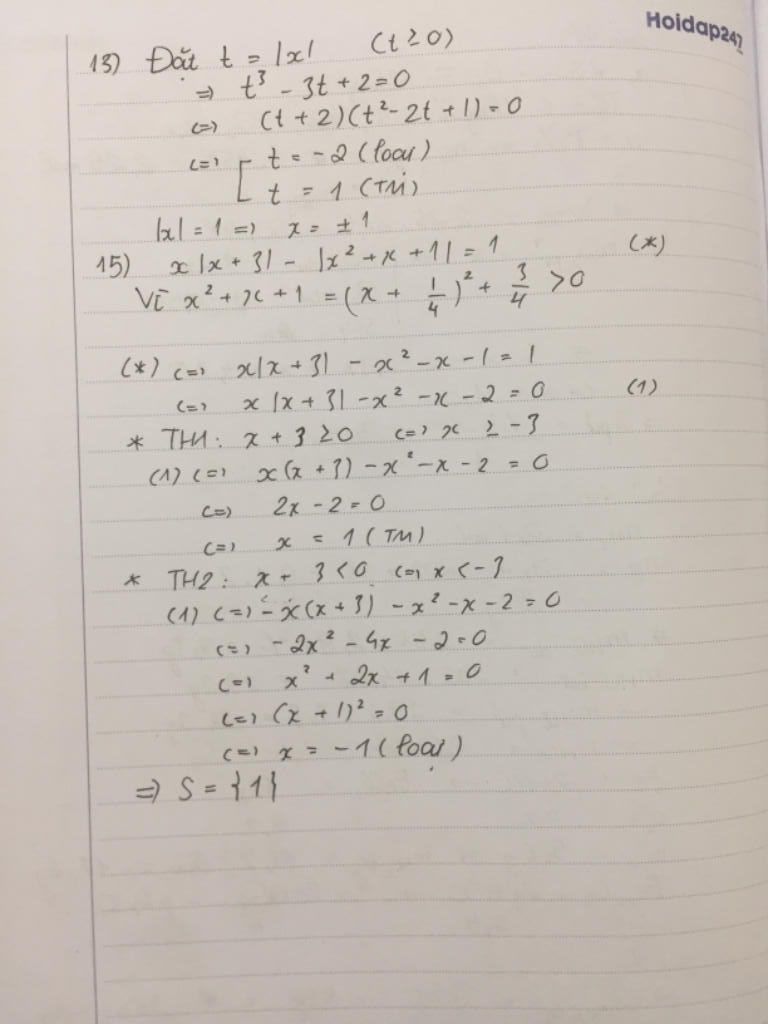 Hoidap247
13) Đặt t = |x| (t ≥ 0)
=> t³ - 3t + 2 = 0
<=> (t + 2)(t² - 2t + 1) = 0
<=> [ t = -2 (loại)
t = 1 (TM)
|x| = 1 => x = ± 1
15) x|x + 3| - |x² + x + 1| = 1 (*)
Vì x² + x + 1 = (x + 1/4)² + 3/4 > 0
(*) <=> x|x + 3| - x² - x - 1 = 1
<=> x|x + 3| - x² - x - 2 = 0 (1)
* TH1: x + 3 ≥ 0 <=> x ≥ -3
(1) <=> x(x + 3) - x² - x - 2 = 0
<=> 2x - 2 = 0
<=> x = 1 (TM)
* TH2: x + 3 < 0 <=> x < -3
(1) <=> - x(x + 3) - x² - x - 2 = 0
<=> -2x² - 4x - 2 = 0
<=> x² + 2x + 1 = 0
<=> (x + 1)² = 0
<=> x = -1 (loại)
=> S = {1}